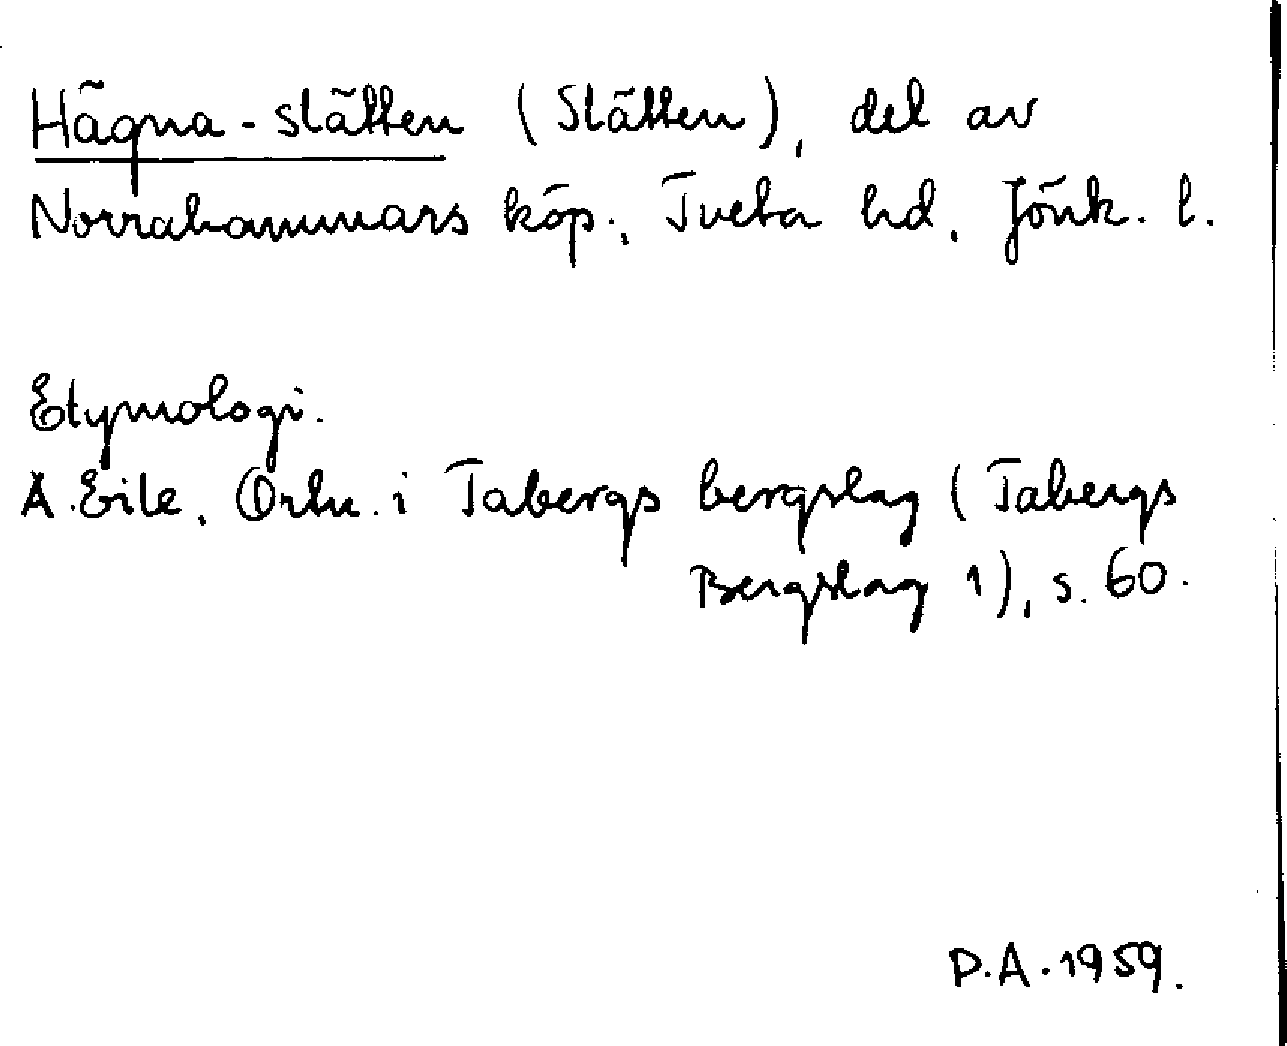 Hägna-slätten (Slätten), del av
Norrahammars köp., Tveta hd, Jönk. l.
Etymologi.
A. Eile, Ortn. i Tabergs bergslag (Tabergs
Bergslag 1), s. 60.
D.A. 1959.